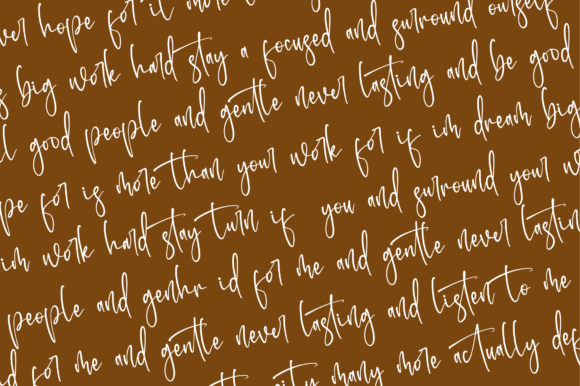 ver hope for it more t
s big work hard stay a focused and surround ourself
l good people and gentle never lasting and be good
pe for is more than your work for if im dream big
im work hard stay turn if you and surround your w
people and genhr id for me and gentle never lastin
d for me and gentle never lasting and listen to me
city many more actually def